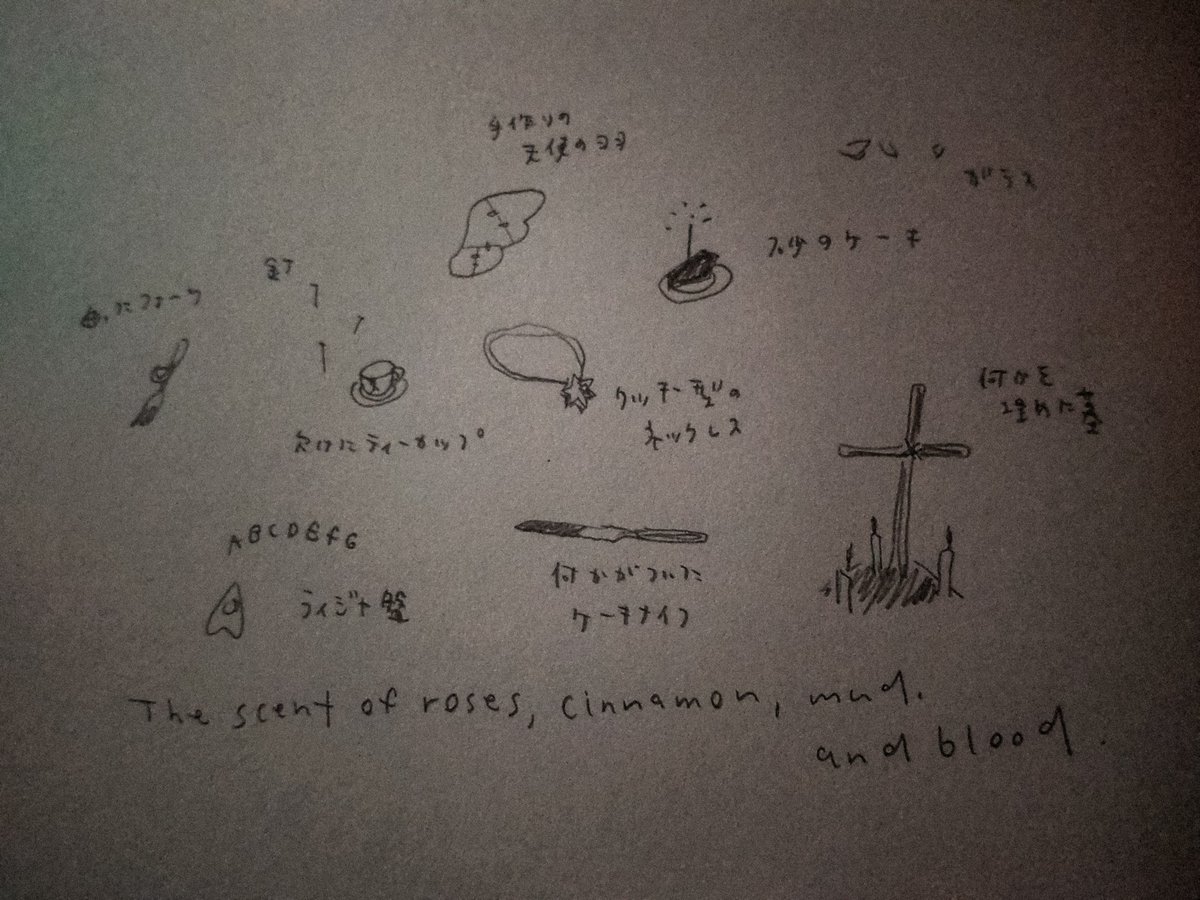 手作りの
天使のヨヨ
ガラス
花火のケーキ
釘
クッキー型の
ネックレス
何かを
埋めた墓
欠けたティーカップ
ABCDEFG
ウィジャ盤
何かがついた
ケーキナイフ
The scent of roses, cinnamon, mud.
and blood.